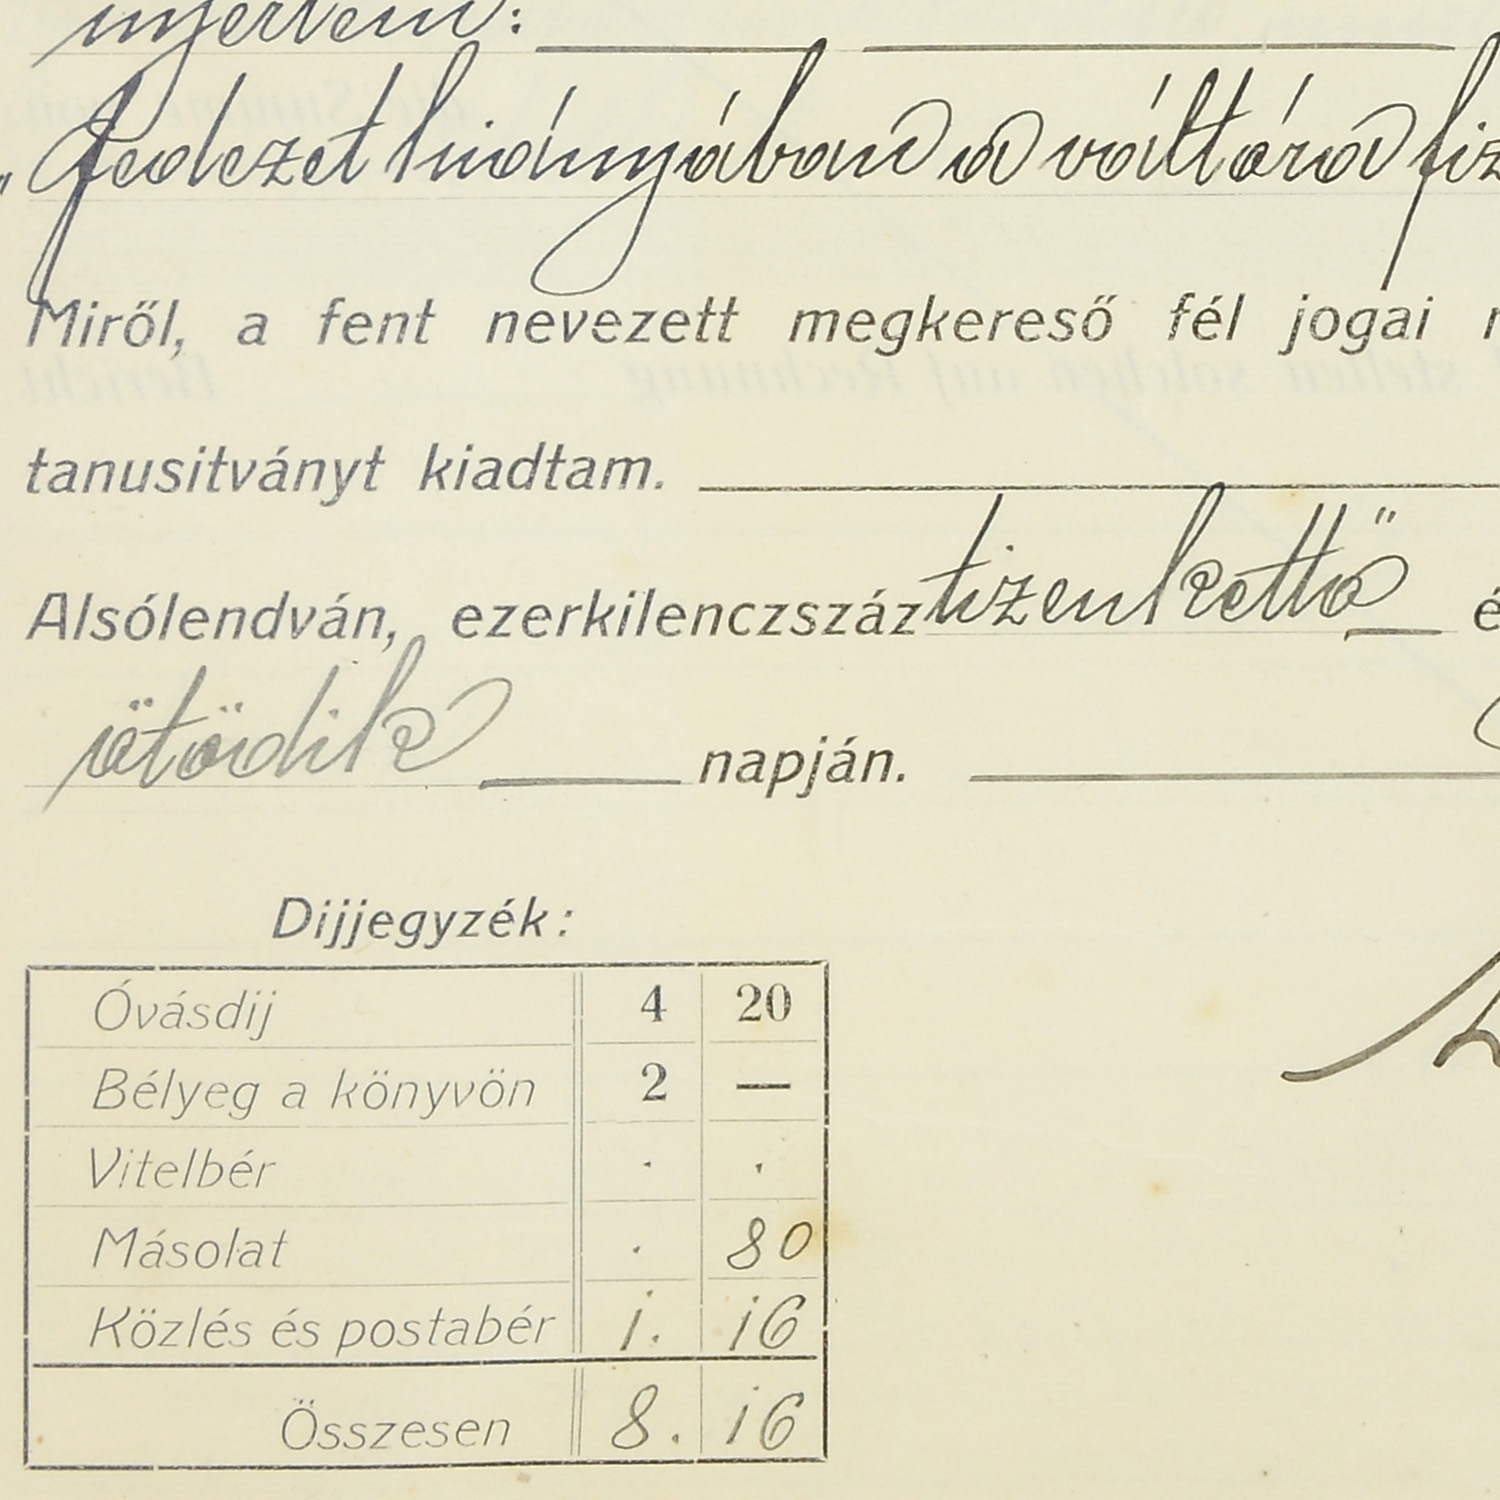 nyertem:
„Fedezet hiányában a váltóra fiz
Miről, a fent nevezett megkereső fél jogai
tanusitványt kiadtam.
Alsólendván, ezerkilenczszáz tizenkettő é
ötödik napján.
Dijjegyzék:
Óvásdij 4 20
Bélyeg a könyvön 2 —
Vitelbér . .
Másolat . 80
Közlés és postabér 1. 16
Összesen 8. 16